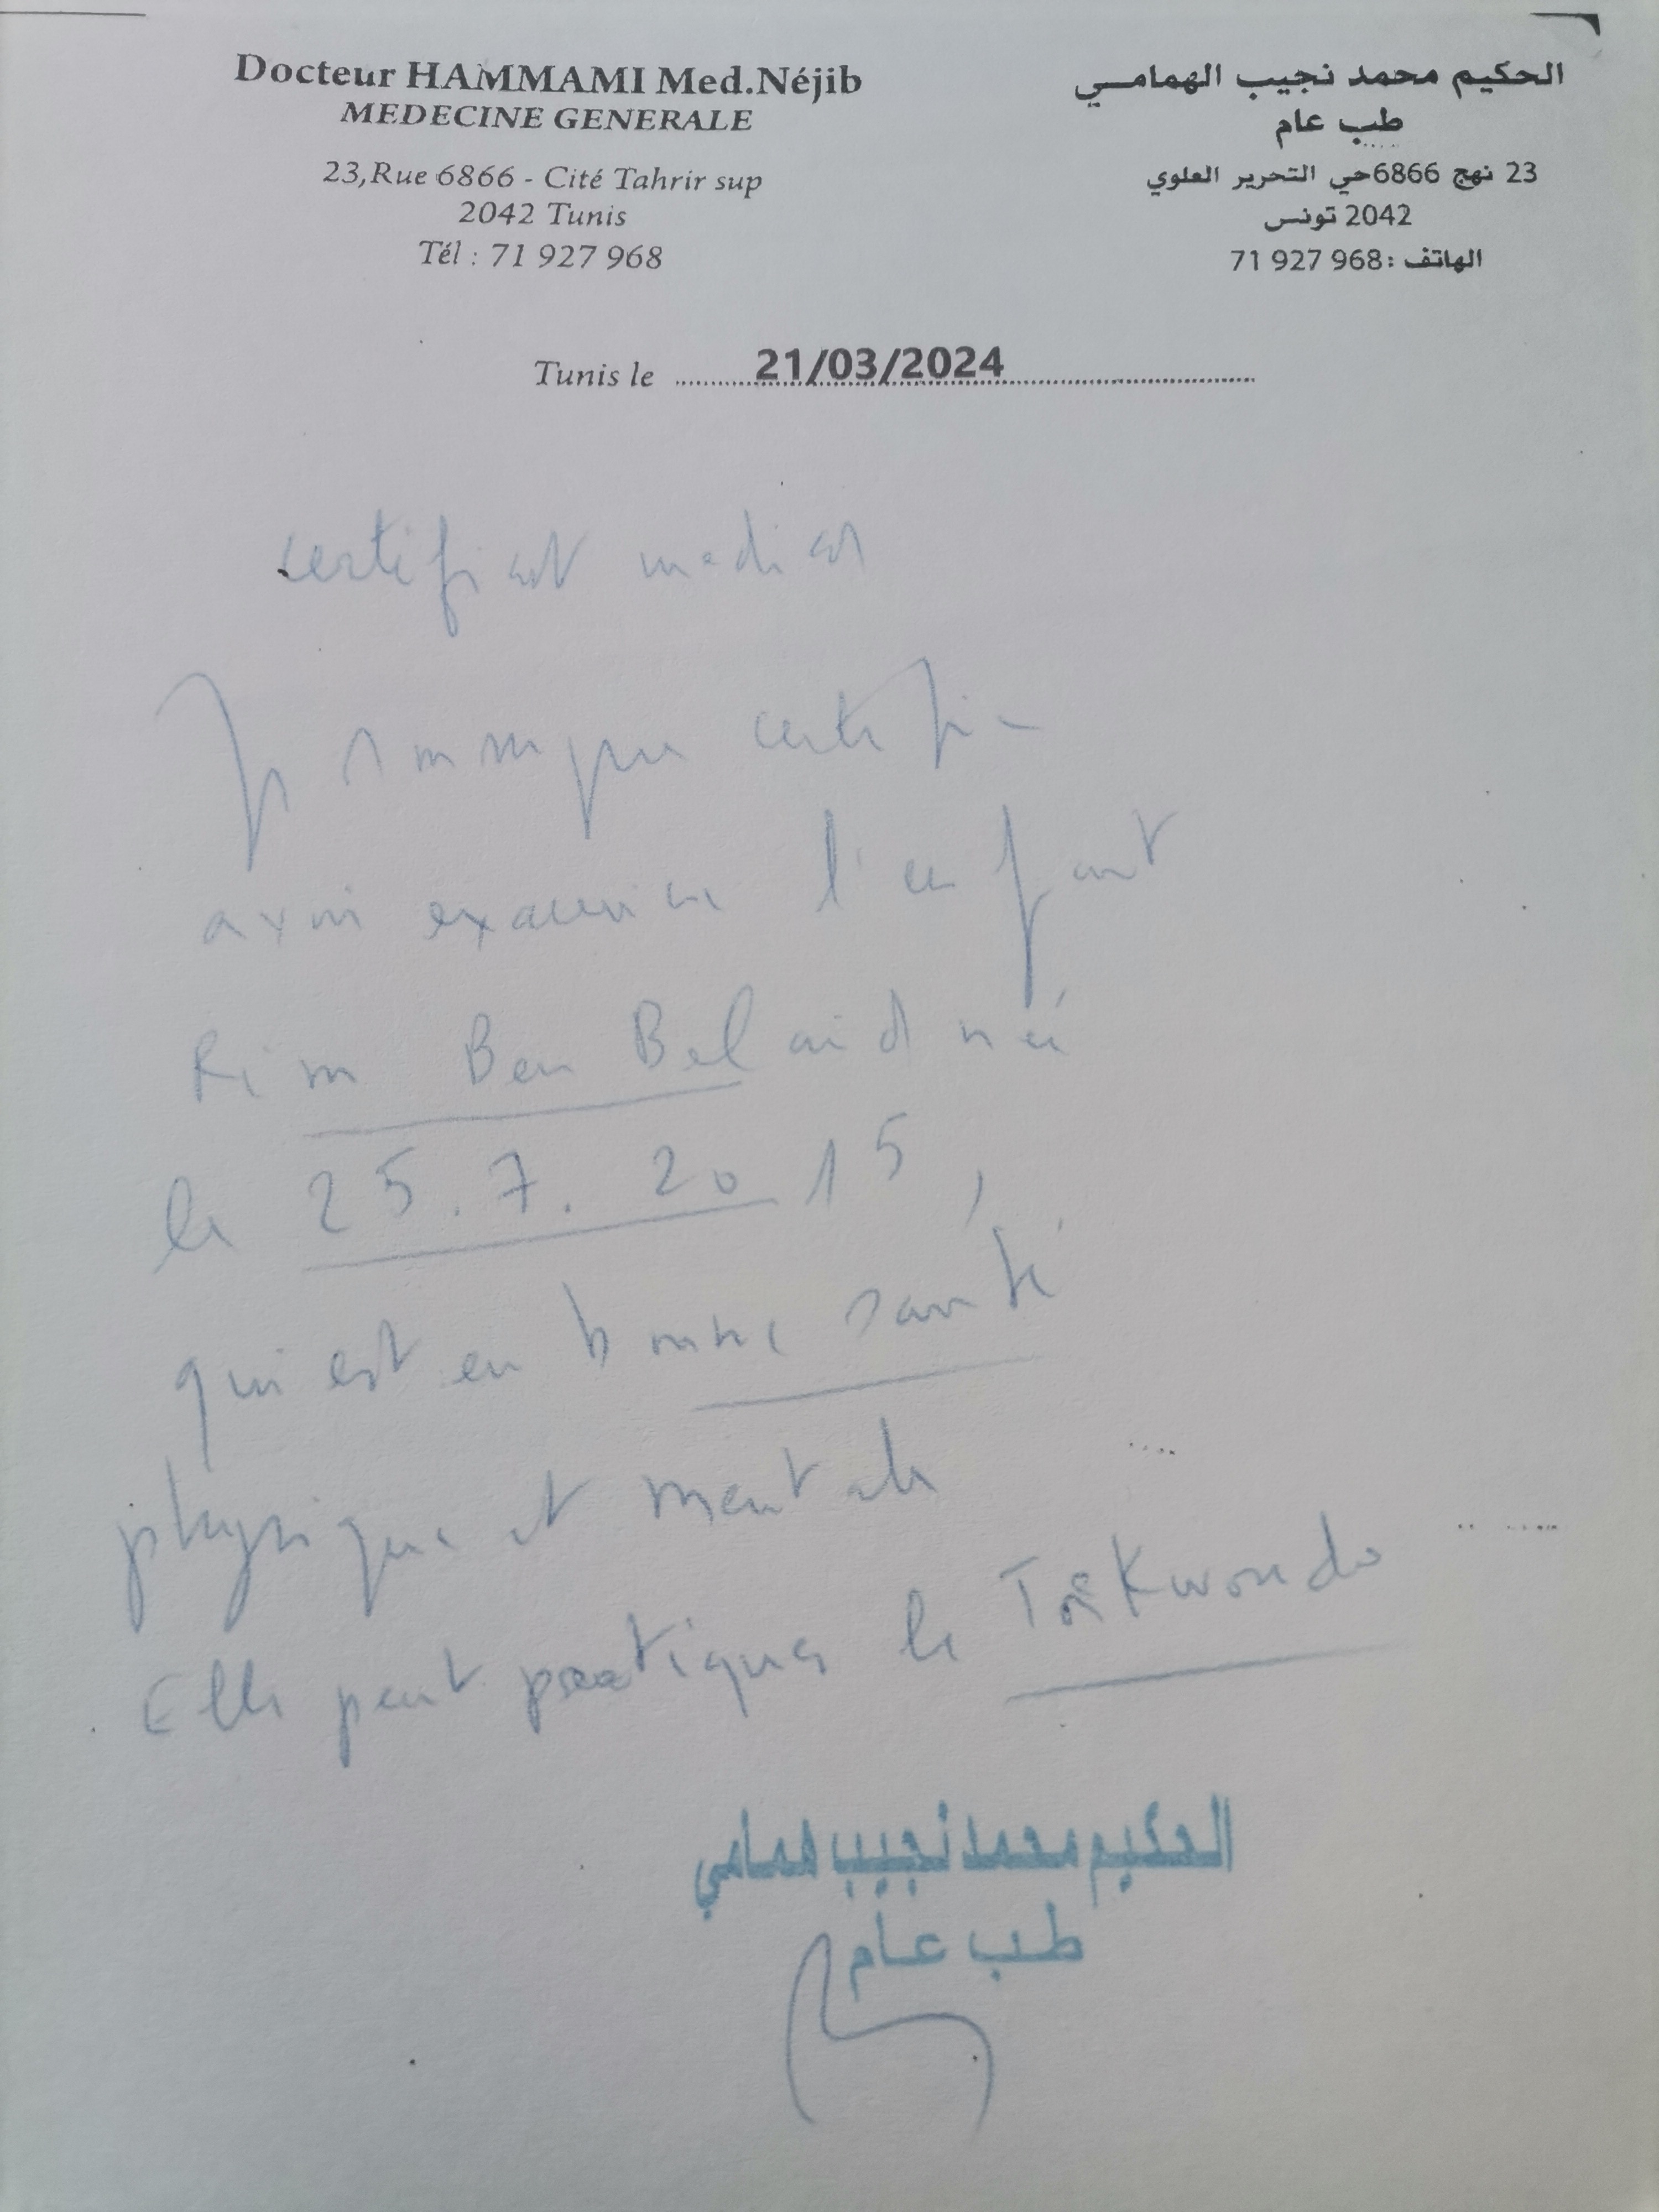 Docteur HAMMAMI Med.Néjib
MEDECINE GENERALE
23,Rue 6866 - Cité Tahrir sup
2042 Tunis
Tél : 71 927 968
الحكيم محمد نجيب الهمامي
طب عام
23 نهج 6866حي التحرير العلوي
2042 تونس
الهاتف :71 927 968
Tunis le 21/03/2024
certificat medical
Je soussigné certifie
avoir examiné l'enfant
Rim Ben Belaid née
le 25.7.2015,
qui est en bonne santé
physique et mentale
Elle peut pratiquer le Taekwondo
الحكيم محمد نجيب همامي
طب عام